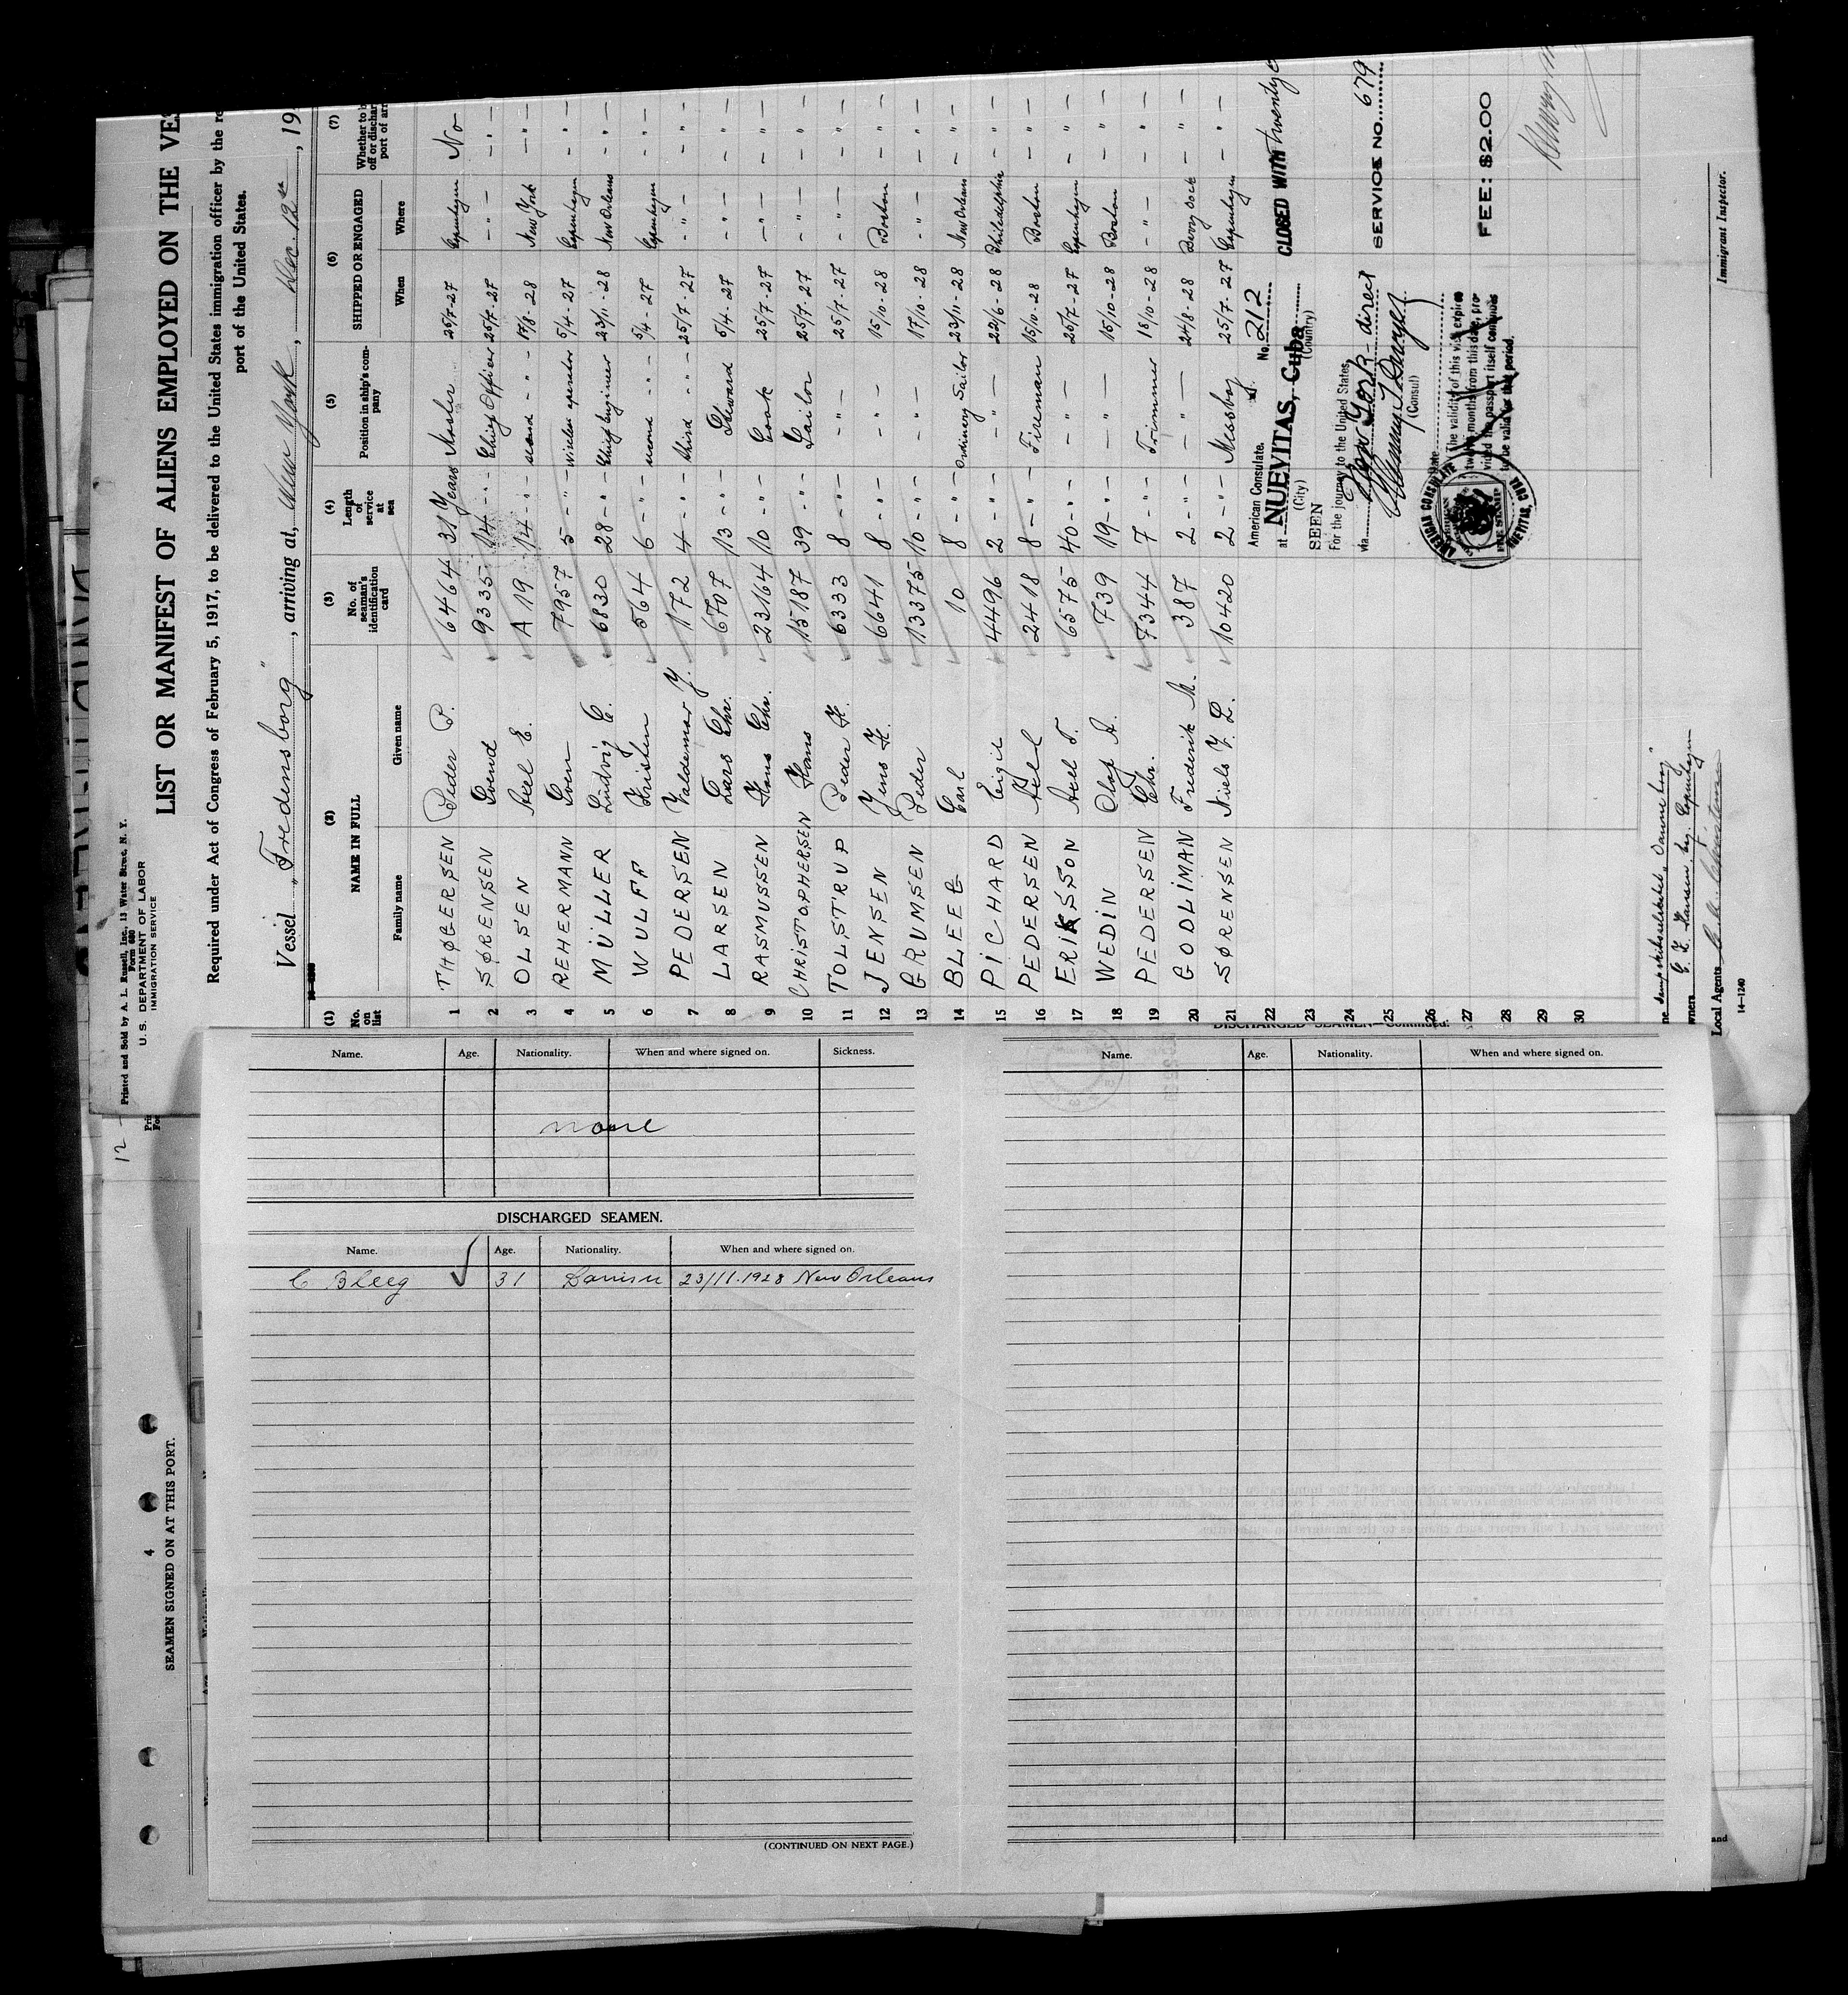 Printed and Sold by A. L. Russell, Inc., 13 Water Street, N. Y.
Form 680
U. S. DEPARTMENT OF LABOR
IMMIGRATION SERVICE
LIST OR MANIFEST OF ALIENS EMPLOYED ON THE VES
Required under Act of Congress of February 5, 1917, to be delivered to the United States immigration officer by the re
port of the United States.
Vessel „Fredensborg", arriving at, New York, Dec. 12th, 19
(1) (2) (3) (4) (5) (6) (7)
No. on list NAME IN FULL No. of seaman's identification card Length of service at sea Position in ship's company SHIPPED OR ENGAGED Whether to b off or dischar port of arr
Family name Given name When Where
1 THØGERSEN Peder P. 6464 31 Years Master 25/7-27 Copenhagen No
2 SØRENSEN Svend 9335 14 - " - Chief Officer 25/7-27 - " - - " -
3 OLSEN Axel E. A 19 14 - " - second - " - 17/8-28 New York - " -
4 REHERMANN Sven 7957 5 - " - Wireless operator 5/4-27 Copenhagen - " -
5 MÜLLER Ludvig C. 6830 28 - " - Chief Engineer 23/11-28 New Orleans - " -
6 WULFF Kristen 564 6 - " - second - " - 5/4-27 Copenhagen - " -
7 PEDERSEN Valdemar Y. 172 4 - " - third - " - 25/7-27 - " - - " -
8 LARSEN Lars Chr. 6707 13 - " - Steward 5/4-27 - " - - " -
9 RASMUSSEN Hans Chr. 23164 10 - " - Cook 25/7-27 - " - - " -
10 CHRISTOPHERSEN Hans 15187 39 - " - Sailor 25/7-27 - " - - " -
11 TOLSTRUP Peder H. 6333 8 - " - - " - 25/7-27 - " - - " -
12 JENSEN Jens H. 6641 8 - " - - " - 15/10-28 Boston - " -
13 GRUMSEN Peder 13375 10 - " - - " - 17/10-28 - " - - " -
14 BLEEG Carl 10 8 - " - Ordinary Sailor 23/11-28 New Orleans - " -
15 PICHARD Eigil 4496 2 - " - - " - 22/6-28 Philadelphia - " -
16 PEDERSEN Axel 2418 8 - " - Fireman 15/10-28 Boston - " -
17 ERIKSSON Axel T. 6575 40 - " - - " - 25/7-27 Copenhagen - " -
18 WEDIN Olaf A. 739 19 - " - - " - 15/10-28 Boston - " -
19 PEDERSEN Chr. 7344 7 - " - Trimmer 15/10-28 - " - - " -
20 GODLIMAN Frederik M. 387 2 - " - - " - 24/8-28 Berry Dock - " -
21 SØRENSEN Niels Y. L. 10420 2 - " - Messboy 25/7-27 Copenhagen - " -
22
23
24
25
26
27
28
29
30
American Consulate. No. 212
at NUEVITAS, Cuba
(City) (Country)
CLOSED WITH twenty
SEEN
For the journey to the United States
via New York - direct
SERVICE NO. 679
(Consul)
Date
The validity of this visa expires
twelve months from this date, pro-
vided the passport itself continues
to be valid for that period.
AMERICAN CONSULATE
NUEVITAS, CUBA
FEE: $2.00
Immigrant Inspector.
Dampskibsselskabet „Dannebrog"
wners C. K. Hansen, Copenhagen
Local Agents
14—1240
12
4
SEAMEN SIGNED ON AT THIS PORT.
Name. Age. Nationality. When and where signed on. Sickness.
none
DISCHARGED SEAMEN.
Name. Age. Nationality. When and where signed on.
C Bleeg 31 Danish 23/11.1928 New Orleans
(CONTINUED ON NEXT PAGE.)
DISCHARGED SEAMEN—Continued.
Name. Age. Nationality. When and where signed on.
and